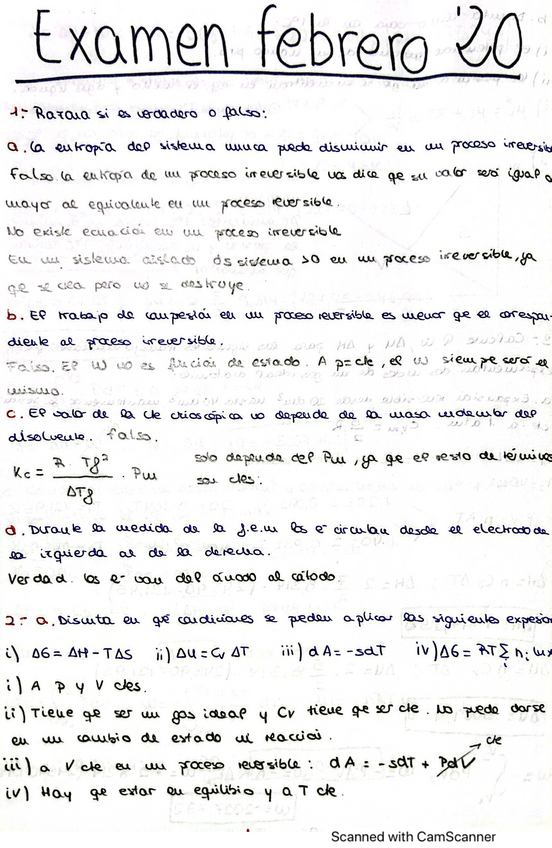 Examen febrero '20
1:- Razona si es verdadero o falso:
a. La entropía del sistema nunca puede disminuir en un proceso irreversib
Falso. la entropía de un proceso irreversible nos dice qe su valor será igual o
mayor al equivalente en un proceso reversible.
No existe ecuación en un proceso irreversible
En un sistema aislado ΔS sistema >0 en un proceso irreversible, ya
qe se crea pero no se destruye.
b. El trabajo de compresión en un proceso reversible es menor qe el correspon-
diente al proceso irreversible.
Falso. El W no es función de estado. A p=cte, el W siempre será el
mismo.
c. El valor de la cte crioscópica no depende de la masa molecular del
disolvente. Falso.
Kc = R · Tf² / ΔTf · Pm solo depende del Pm, ya qe el resto de términos
son ctes.
d. Durante la medida de la f.e.m los e- circulan desde el electrodo de
la izquierda al de la derecha.
Verdad. los e- van del ánodo al cátodo.
2:- a. Discuta en qé condiciones se pueden aplicar las siguientes expresion
i) ΔG = ΔH - TΔS ii) ΔU = Cv ΔT iii) dA = -SdT iv) ΔG = RT Σ ni ln x
i) A p y V ctes.
ii) Tiene qe ser un gas ideal y Cv tiene qe ser cte. No puede darse
en un cambio de estado ni reacción.
iii) a V cte en un proceso reversible: dA = -SdT + PdV → cte
iv) Hay qe estar en equilibrio y a T cte.
Scanned with CamScanner